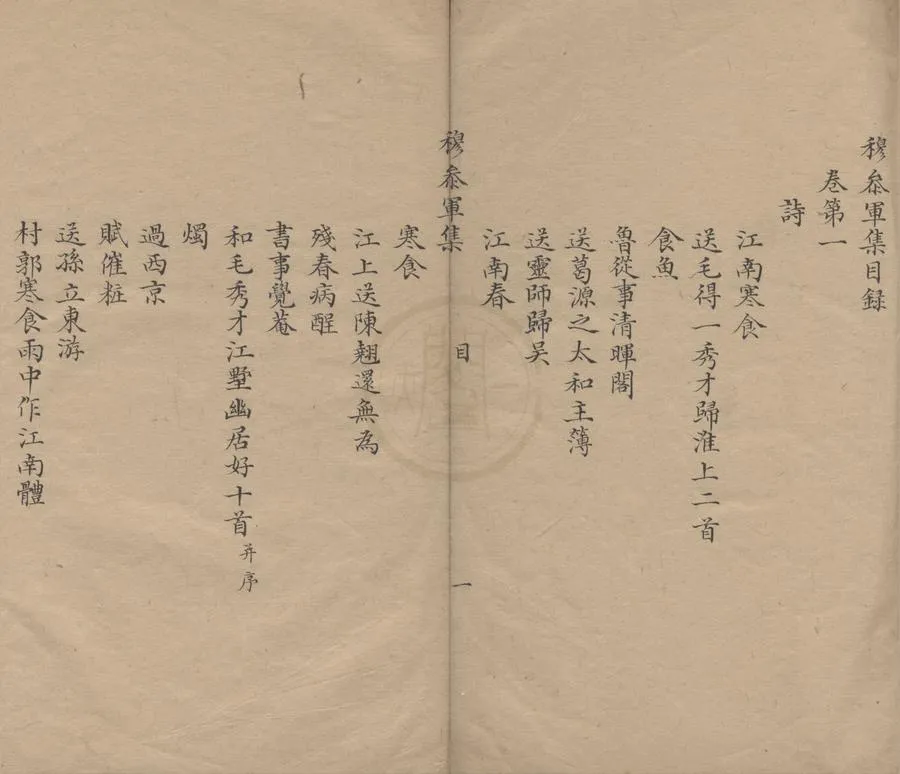 穆叅軍集目録
卷第一
詩
江南寒食
送毛得一秀才歸淮上二首
食魚
魯從事清暉閣
送葛源之太和主簿
送靈師歸吴
江南春
穆叅軍集 目 一
寒食
江上送陳翹還無為
殘春病酲
書事覺菴
和毛秀才江墅幽居好十首并序
燭
過西京
賦催粧
送孫立東游
村郭寒食雨中作江南體